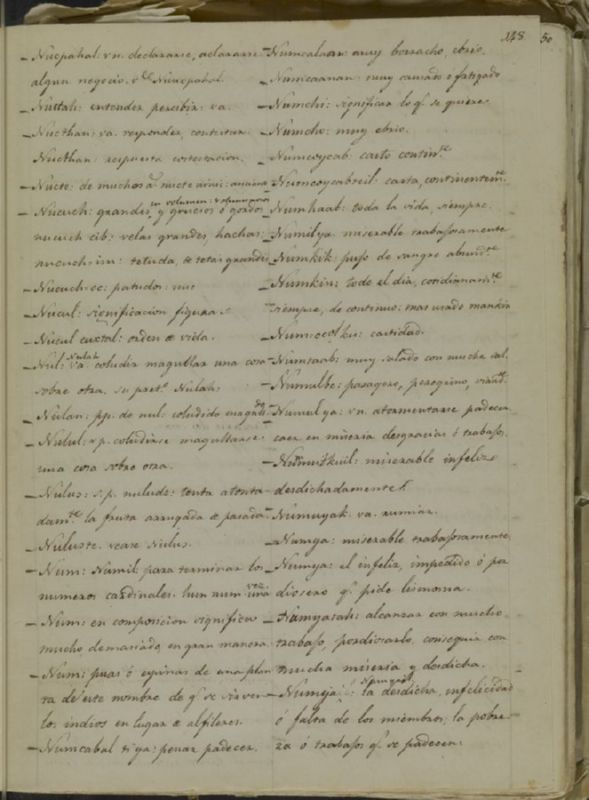 148. 50
– Nucpahal: vn. declararse, aclararse
algun negocio. Nicucpahal
– Nuctah: entender percibir: va.
– Nucthan: va. responder, contestar
Nucthan: respuesta contestacion.
– Nucte: de muchos
en volumen: voluminosa
– Nucuch: grandes, y gruesos ó gordos
nucuch cib: velas grandes, hachas:
nucuch-im: tetuda, de tetas grandes
– Nucuch-oc: patudos:
– Nucul: significacion figura
– Nucul cuxtal: orden de vida.
Nulah
– Nul: va. coludir magullar una cosa
sobre otra. su pret.º Nulah.
– Nulan: pp. de nul: coludido magulla do
– Nulul: vp. coludirse magullarse
una cosa sobre otra.
– Nulus: s.p. nuluds: tonta atonta-
dam.te la fruta arrugada de pasada
– Nuluste. vease Nulus.
– Num: Numil: para terminar los
numeros cardinales. hun num una vez.
– Num: en composicion significa
mucho demasiado, en gran manera
– Num: puas ó espinas de una plan
ta de este nombre de q.e se sirven
los indios en lugar de alfileres.
– Numcabal ti ya: penar padecer.
– Numcalaan: muy borracho, ebrio.
– Numcaanan: muy cansado ó fatigado
– Numchi: significar lo q.e se quiere.
– Numcho: muy ebrio.
– Numcoycab: casto contin.te
– Numcoycabreil: casta, continentem.te
– Numhaab: toda la vida, siempre.
– Numilya: miserable trabajosamente
– Numkik: pujo de sangre abund.te
– Numkin: todo el dia, cotidianam.te
siempre, de continuo: mas usado mankin
– Num: castidad.
– Numtaab: muy salado con mucha sal.
– Numulbe: pasagero, peregrino, viand.te
– Numul ya: vn. atormentarse padecer
caer en miseria desgracias ó trabajos,
– miserable infeliz
desdichadamente.
– Numuyak: va. rumiar.
– Numya: miserable trabajosamente
– Numya: el infeliz, impedido ó por
diosero q.e pide limosna.
– Numyatah: alcanzar con mucho
trabajo, pordiosearlo, conseguir con
mucha miseria y desdicha.
– Numya: la desdicha, infelicidad
ó falta de los miembros; la pobre-
za ó trabajos q.e se padecen: